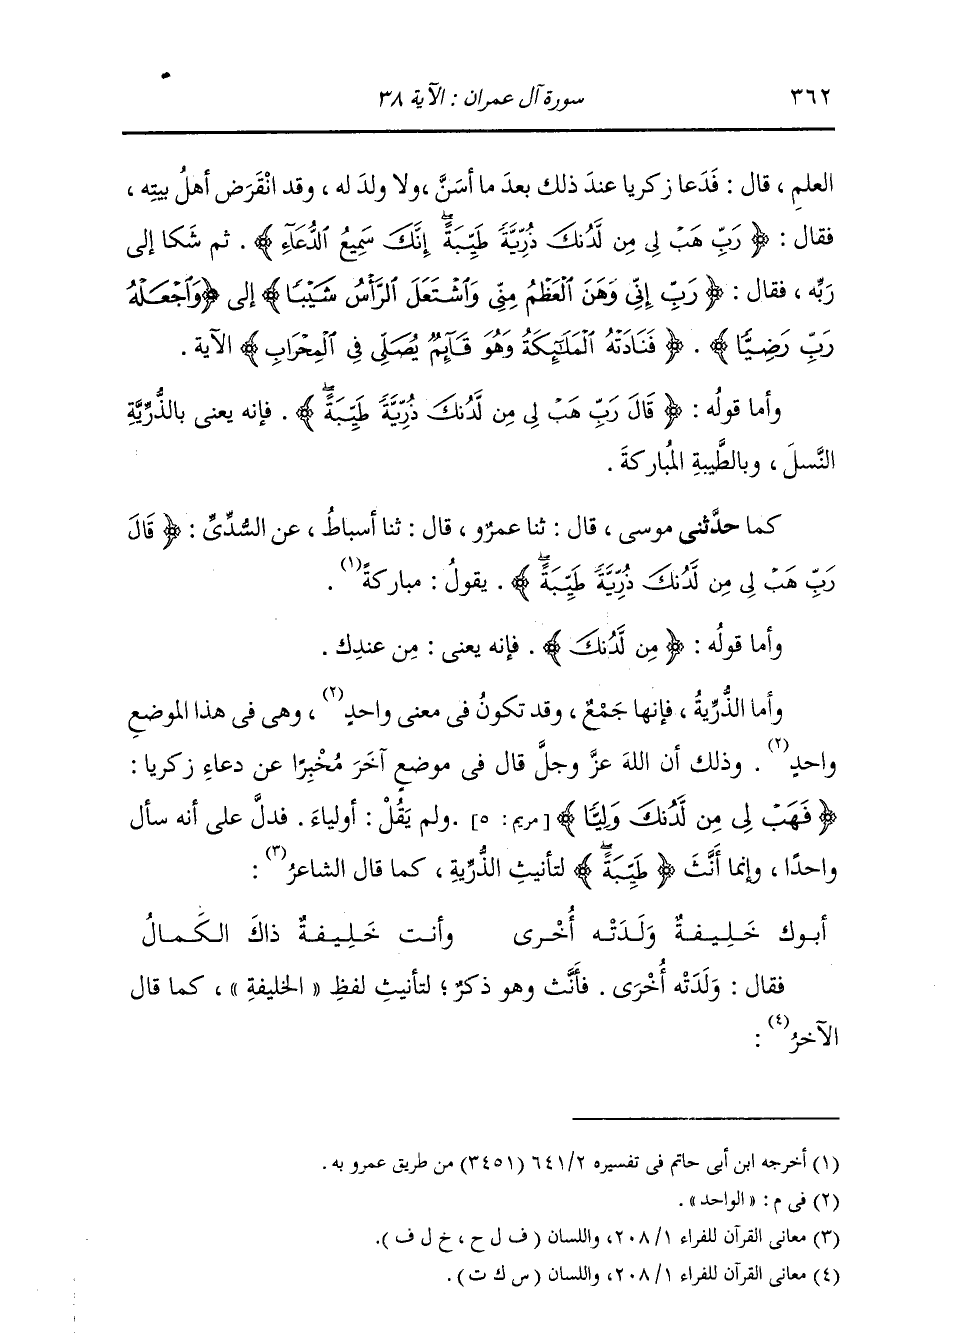 ٣٦٢ سورة آل عمران : الآية ٣٨
العلمِ ، قال : فَدَعا زكريا عندَ ذلك بعدَ ما أسَنَّ ،ولا ولدَ له ، وقد انْقَرَض أهلُ بيتِه ،
فقال : ﴿ رَبِّ هَبْ لِي مِن لَّدُنكَ ذُرِّيَّةً طَيِّبَةًۖ إِنَّكَ سَمِيعُ الدُّعَآءِ ﴾ . ثم شَكا إلى
ربِّه ، فقال : ﴿ رَبِّ إِنِّي وَهَنَ ٱلْعَظْمُ مِنِّي وَٱشْتَعَلَ ٱلرَّأْسُ شَيْبًا ﴾ إلى ﴿وَٱجْعَلْهُ
رَبِّ رَضِيًّا ﴾ . ﴿ فَنَادَتْهُ ٱلْمَلَٰٓئِكَةُ وَهُوَ قَآئِمٌ يُصَلِّي فِي ٱلْمِحْرَابِ ﴾ الآية .
وأما قولُه : ﴿ قَالَ رَبِّ هَبْ لِي مِن لَّدُنكَ ذُرِّيَّةً طَيِّبَةًۖ ﴾ . فإنه يعنى بالذُّرِّيَّةِ
النَّسلَ ، وبالطَّيبةِ المُباركةَ .
كما حدَّثنى موسى ، قال : ثنا عمرٌو ، قال : ثنا أسباطُ ، عن السُّدِّىِّ : ﴿ قَالَ
رَبِّ هَبْ لِي مِن لَّدُنكَ ذُرِّيَّةً طَيِّبَةًۖ ﴾ . يقولُ : مباركةً(١) .
وأما قولُه : ﴿ مِن لَّدُنكَ ﴾ . فإنه يعنى : مِن عندِك .
وأما الذُّرِّيةُ ، فإنها جَمْعٌ ، وقد تكونُ فى معنى واحدٍ(٢) ، وهى فى هذا الموضعِ
واحدٍ(٢) . وذلك أن اللهَ عزَّ وجلَّ قال فى موضعٍ آخَرَ مُخْبِرًا عن دعاءِ زكريا :
﴿ فَهَبْ لِي مِن لَّدُنكَ وَلِيًّا ﴾ [مريم: ٥] .ولم يَقُلْ : أولياءَ . فدلَّ على أنه سأل
واحدًا ، وإنما أنَّثَ ﴿ طَيِّبَةًۖ ﴾ لتأنيثِ الذُّرِّيةِ ، كما قال الشاعرُ(٣) :
أبوك خَلِيفةٌ وَلَدَتْه أُخْرى وأنت خَلِيفةٌ ذاكَ الكَمالُ
فقال : وَلَدَتْه أُخْرَى . فأنَّث وهو ذكرٌ ؛ لتأنيثِ لفظِ « الخليفةِ » ، كما قال
الآخرُ(٤) :
(١) أخرجه ابن أبى حاتم فى تفسيره ٦٤١/٢ (٣٤٥١) من طريق عمرو به .
(٢) فى م : « الواحد » .
(٣) معانى القرآن للفراء ٢٠٨/١، واللسان ( ف ل ح ، خ ل ف ).
(٤) معانى القرآن للفراء ٢٠٨/١، واللسان ( س ك ت ) .